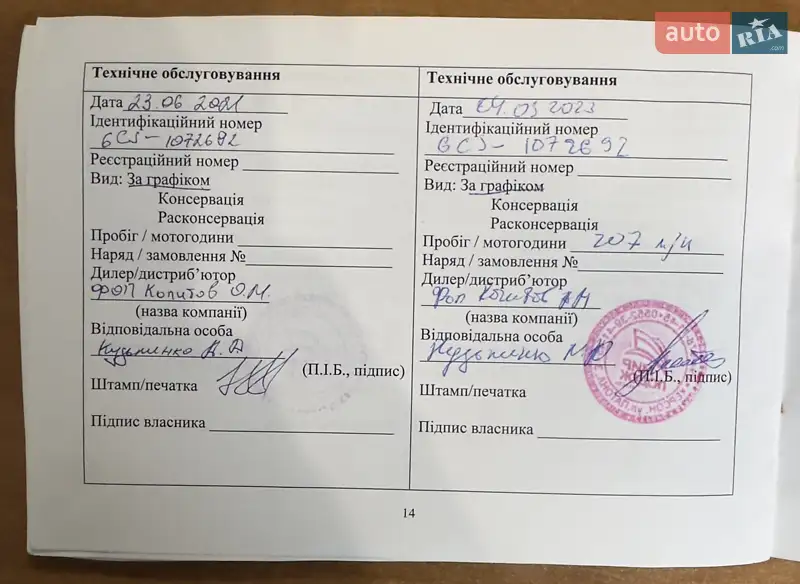 auto RIA .com
Технічне обслуговування
Дата 23.06 2021
Ідентифікаційний номер
6CJ-1072692
Реєстраційний номер
Вид: За графіком
Консервація
Расконсервація
Пробіг / мотогодини
Наряд / замовлення №
Дилер/дистриб’ютор
ФОП Копитов О.М.
(назва компанії)
Відповідальна особа
(П.І.Б., підпис)
Штамп/печатка
Підпис власника
Технічне обслуговування
Дата 03 2023
Ідентифікаційний номер
6CJ- 1072692
Реєстраційний номер
Вид: За графіком
Консервація
Расконсервація
Пробіг / мотогодини 207 м/ч
Наряд / замовлення №
Дилер/дистриб’ютор
Фоп Копитов
(назва компанії)
Відповідальна особа
(П.І.Б., підпис)
Штамп/печатка
Підпис власника
14